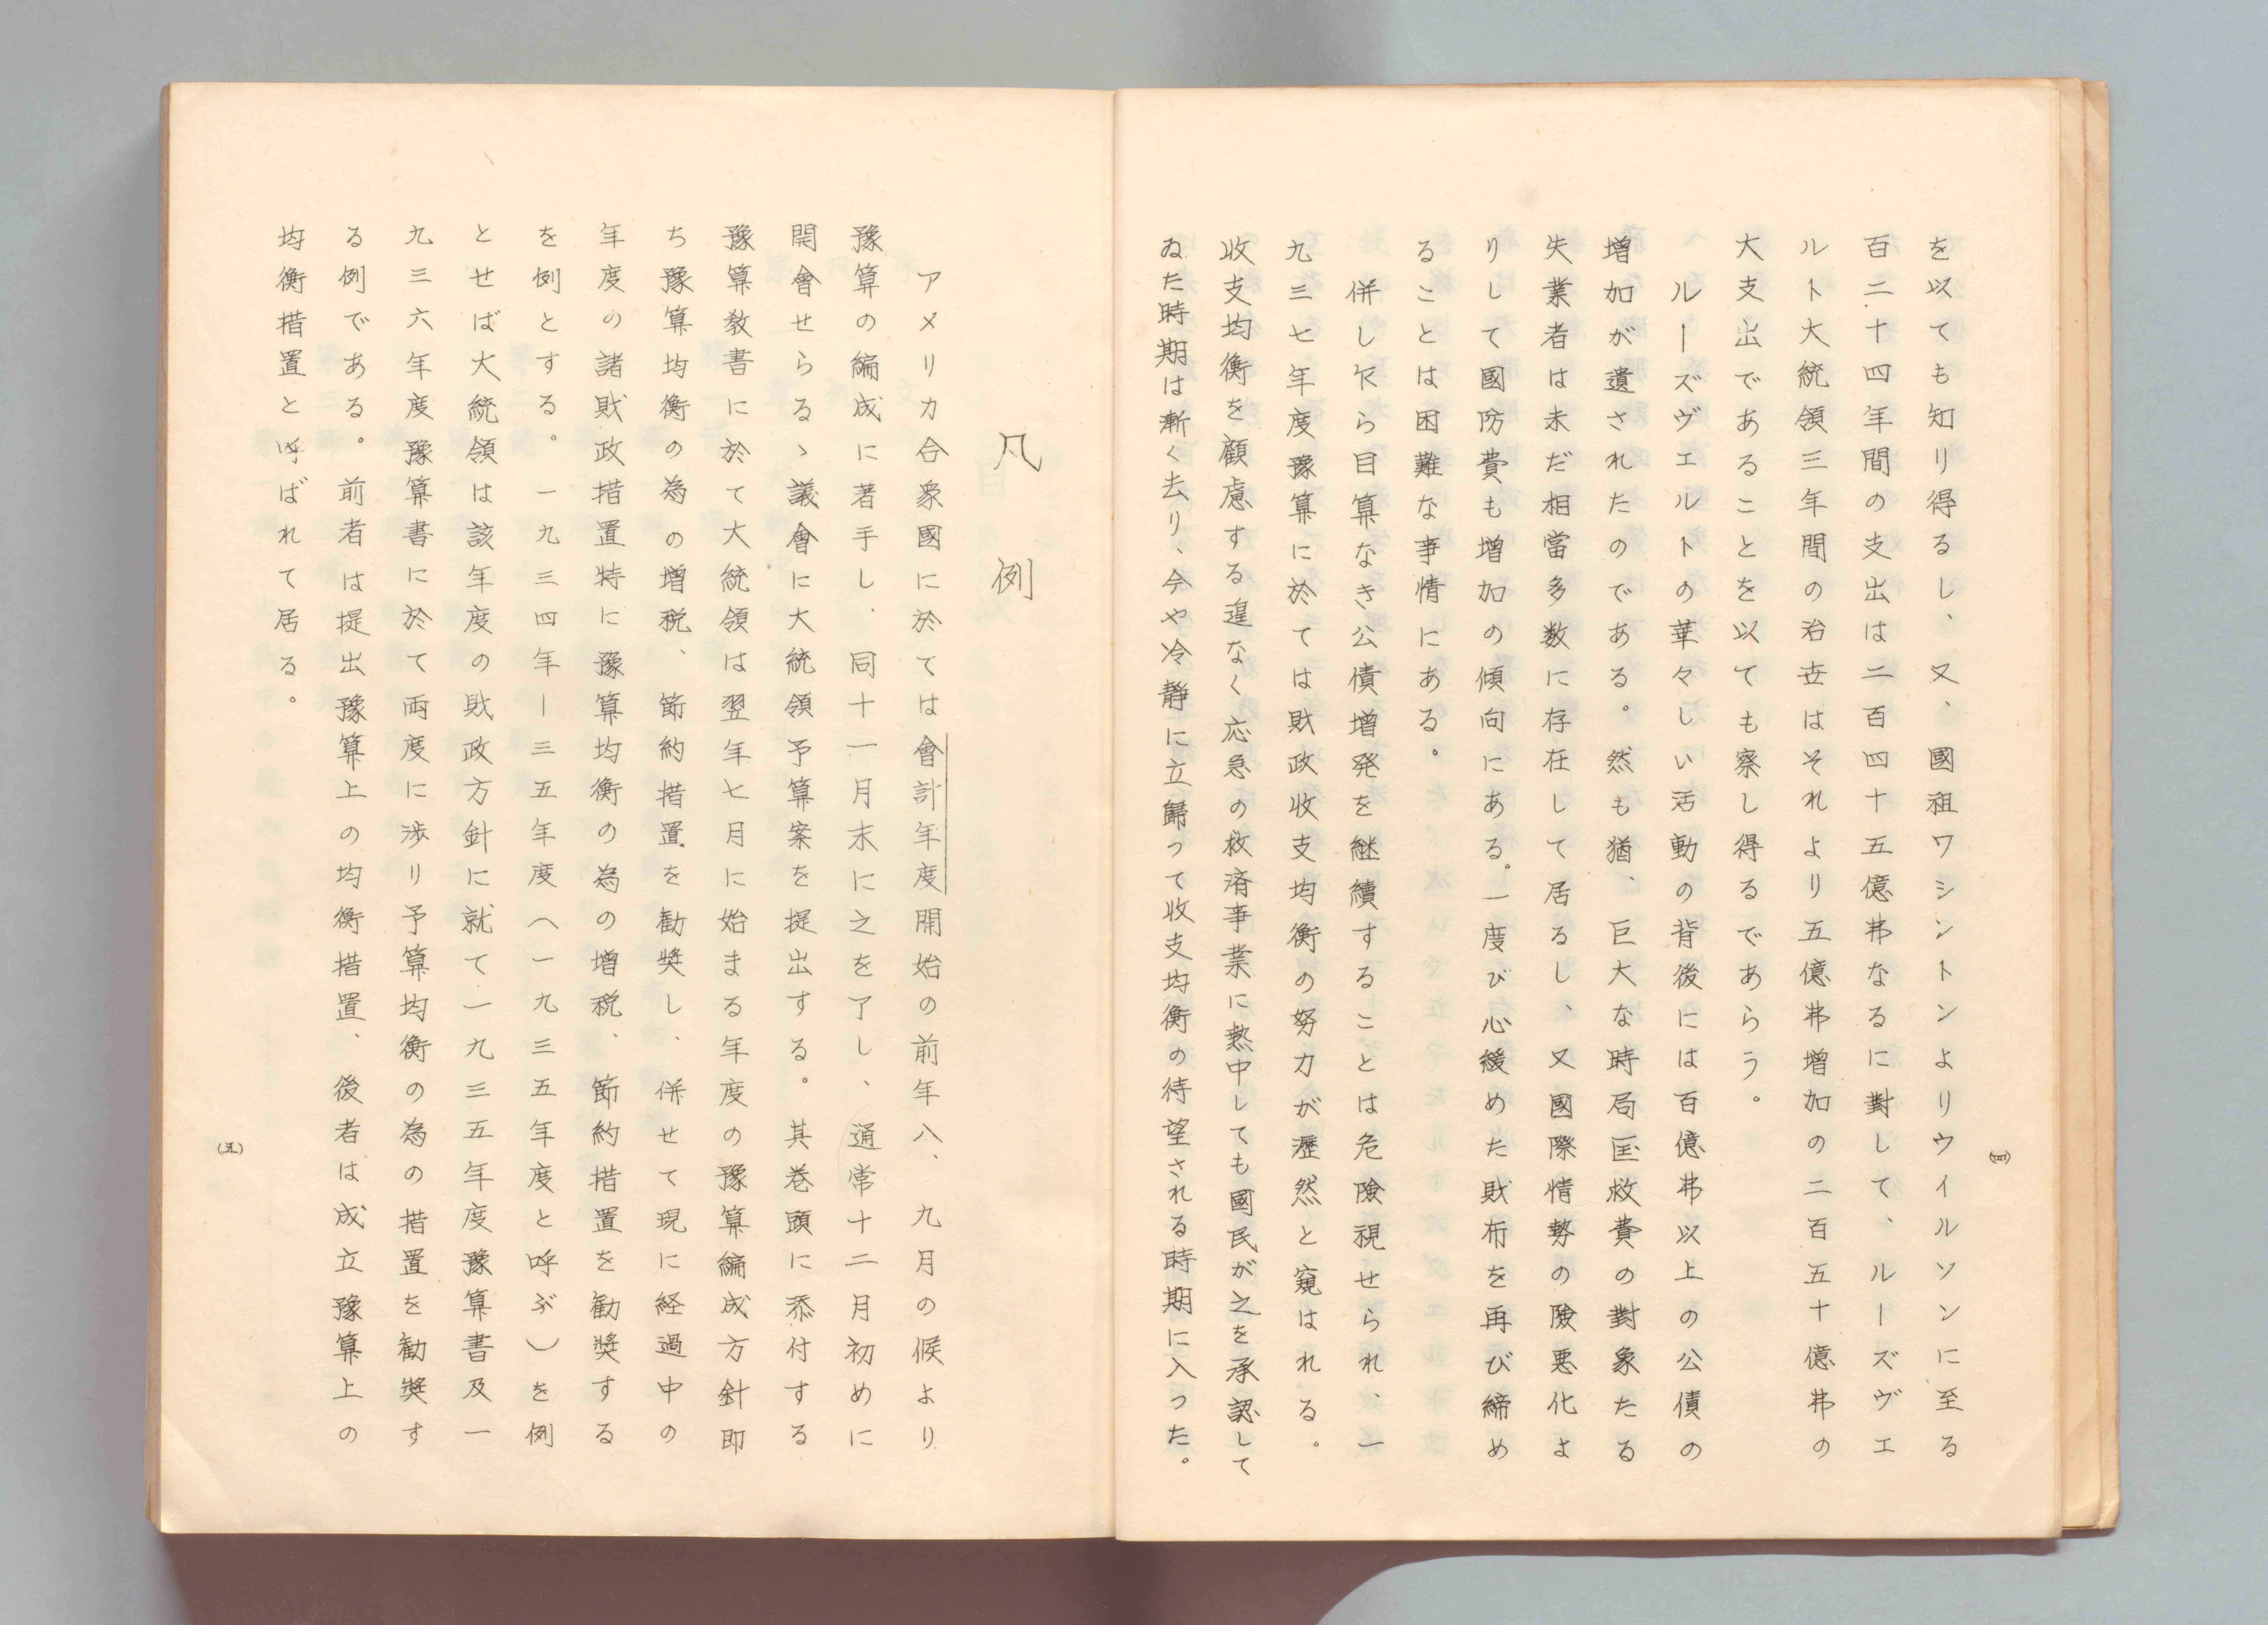 を以ても知り得るし、又、國祖ワシントンよりウイルソンに至る
百二十四年間の支出は二百四十五億弗なるに對して、ルーズヴエ
ルト大統領三年間の治世はそれより五億弗増加の二百五十億弗の
大支出であることを以ても察し得るであらう。
ルーズヴエルトの華々しい活動の背後には百億弗以上の公債の
増加が遺されたのである。然も猶、巨大な時局匡救費の對象たる
失業者は未だ相當多数に存在して居るし、又國際情勢の險悪化よ
りして國防費も増加の傾向にある。一度び心緩めた財布を再び締め
ることは困難な事情にある。
併し乍ら目算なき公債増発を継續することは危險視せられ、一
九三七年度豫算に於ては財政收支均衡の努力が瀝然と窺はれる。
收支均衡を顧慮する遑なく応急の救済事業に熱中しても國民が之を承認して
ゐた時期は漸く去り、今や冷静に立歸って收支均衡の待望される時期に入った。
(四)
凡例
アメリカ合衆國に於ては會計年度開始の前年八、九月の候より
豫算の編成に著手し、同十一月末に之を了し、通常十二月初めに
開會せらるゝ議會に大統領予算案を提出する。其巻頭に添付する
豫算敎書に於て大統領は翌年七月に始まる年度の豫算編成方針即
ち豫算均衡の為の増税、節約措置を勧奨し、併せて現に経過中の
年度の諸財政措置特に豫算均衡の為の増税、節約措置を勧奨する
を例とする。一九三四年ー三五年度(一九三五年度と呼ぶ)を例
とせば大統領は該年度の財政方針に就て一九三五年度豫算書及一
九三六年度豫算書に於て両度に渉り予算均衡の為の措置を勧奨す
る例である。前者は提出豫算上の均衡措置、後者は成立豫算上の
均衡措置と呼ばれて居る。
(五)